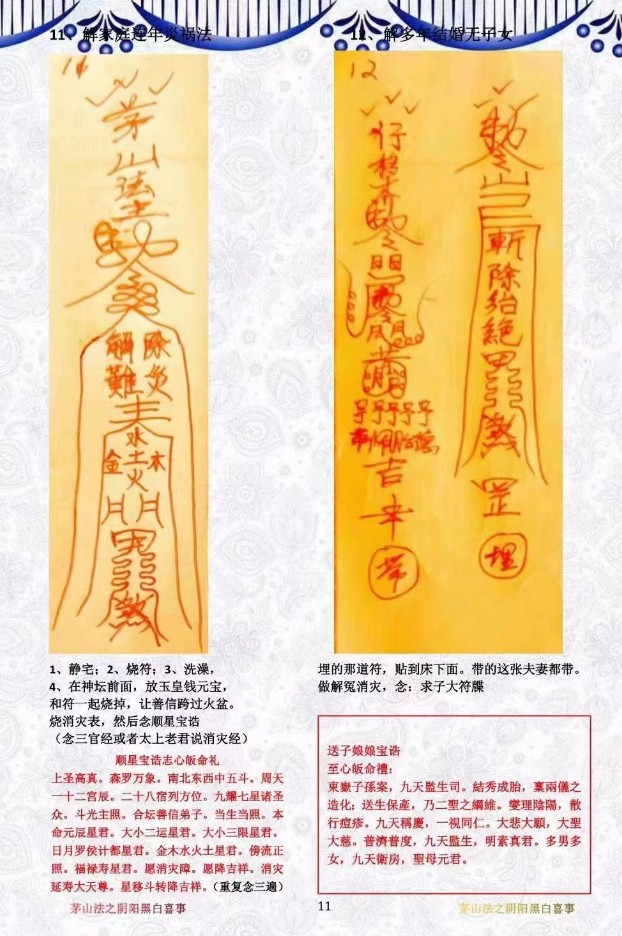 11、解家庭连年灾祸法
14
茅
山
法
主
解 除
難 災
水
金 土 木
火
月 月
1、静宅；2、烧符；3、洗澡，
4、在神坛前面，放玉皇钱元宝，
和符一起烧掉，让善信跨过火盆。
烧消灾表，然后念顺星宝诰
（念三官经或者太上老君说消灾经）
顺星宝诰志心皈命礼
上圣高真。森罗万象。南北东西中五斗。周天
一十二宫辰。二十八宿列方位。九耀七星诸圣
众。斗光主照。合坛善信弟子。当生当照。本
命元辰星君。大小二运星君。大小三限星君。
日月罗侯计都星君。金木水火土星君。傍流正
照。福禄寿星君。愿消灾障。愿降吉祥。消灾
延寿大天尊。星移斗转降吉祥。（重复念三遍）
茅山法之阴阳黑白喜事
12、解多年结婚无子女
12
子子子子子
吉
帶
斬
除
絕
罡
埋
埋的那道符，贴到床下面。带的这张夫妻都带。
做解冤消灾，念：求子大符牒
送子娘娘宝诰
至心皈命禮：
東嶽子孫案，九天監生司。結秀成胎，稟兩儀之
造化；送生保產，乃二聖之綱維。燮理陰陽，散
行痘疹。九天稱慶，一視同仁。大悲大願，大聖
大慈。普濟普度，九天監生，明素真君。多男多
女，九天衛房，聖母元君。
11
茅山法之阴阳黑白喜事